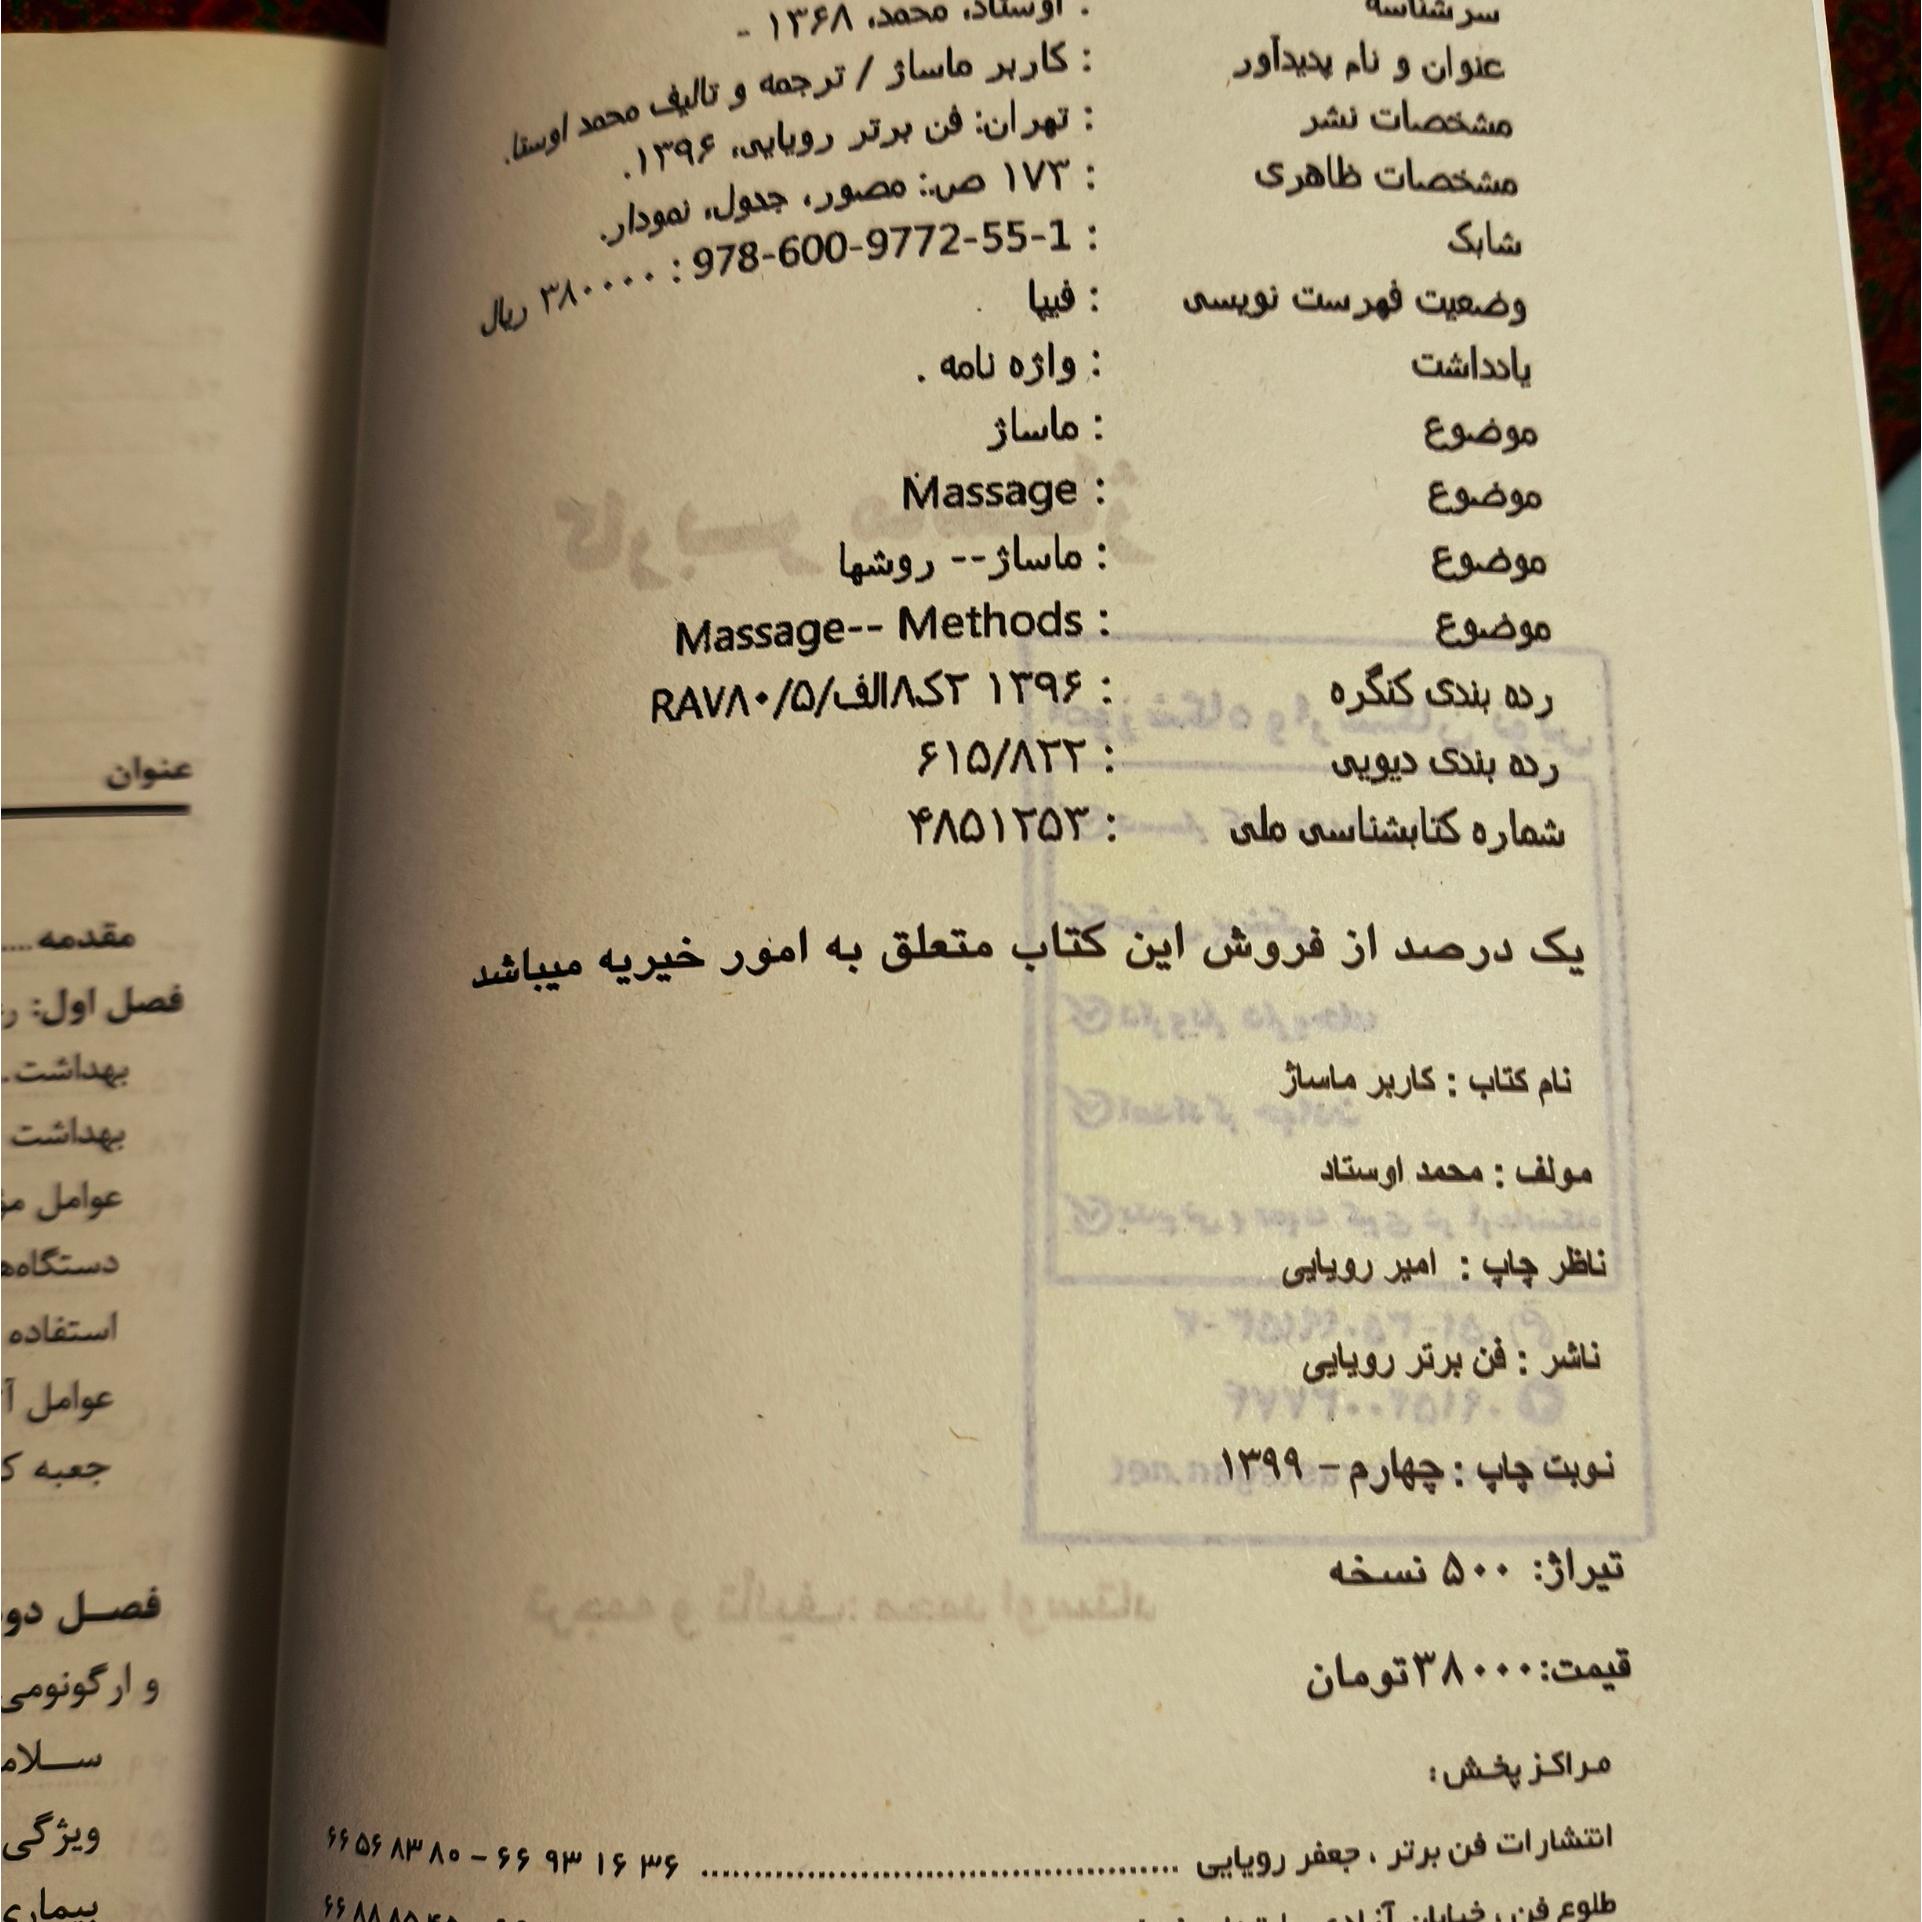 سرشناسه : اوستاد، محمد، ۱۳۶۸ -
عنوان و نام پدیدآور : کاربر ماساژ / ترجمه و تالیف محمد اوستا.
مشخصات نشر : تهران: فن برتر رویایی، ۱۳۹۶.
مشخصات ظاهری : ۱۷۳ ص.: مصور، جدول، نمودار.
شابک : 978-600-9772-55-1 : ۳۸۰۰۰۰ ریال
وضعیت فهرست نویسی : فیپا
یادداشت : واژه نامه .
موضوع : ماساژ
موضوع : Massage
موضوع : ماساژ-- روشها
موضوع : Massage-- Methods
رده بندی کنگره : ۱۳۹۶ ۲ک۸الف/۵/RA۷۸۰
رده بندی دیویی : ۶۱۵/۸۲۲
شماره کتابشناسی ملی : ۴۸۵۱۲۵۳
یک درصد از فروش این کتاب متعلق به امور خیریه میباشد
نام کتاب : کاربر ماساژ
مولف : محمد اوستاد
ناظر چاپ : امیر رویایی
ناشر : فن برتر رویایی
نوبت چاپ : چهارم – ۱۳۹۹
تیراژ: ۵۰۰ نسخه
قیمت:۳۸۰۰۰تومان
مراکز پخش:
انتشارات فن برتر ، جعفر رویایی ........................................ ۳۶ ۱۶ ۹۳ ۶۶ – ۸۰ ۸۳ ۵۶ ۶۶
طلوع فن ، خیابان آزادی
عنوان
مقدمه....
فصل اول:
بهداشت.
بهداشت
عوامل
استفاده
عوامل
جعبه
فصل
و ارگونومی
ویژگی